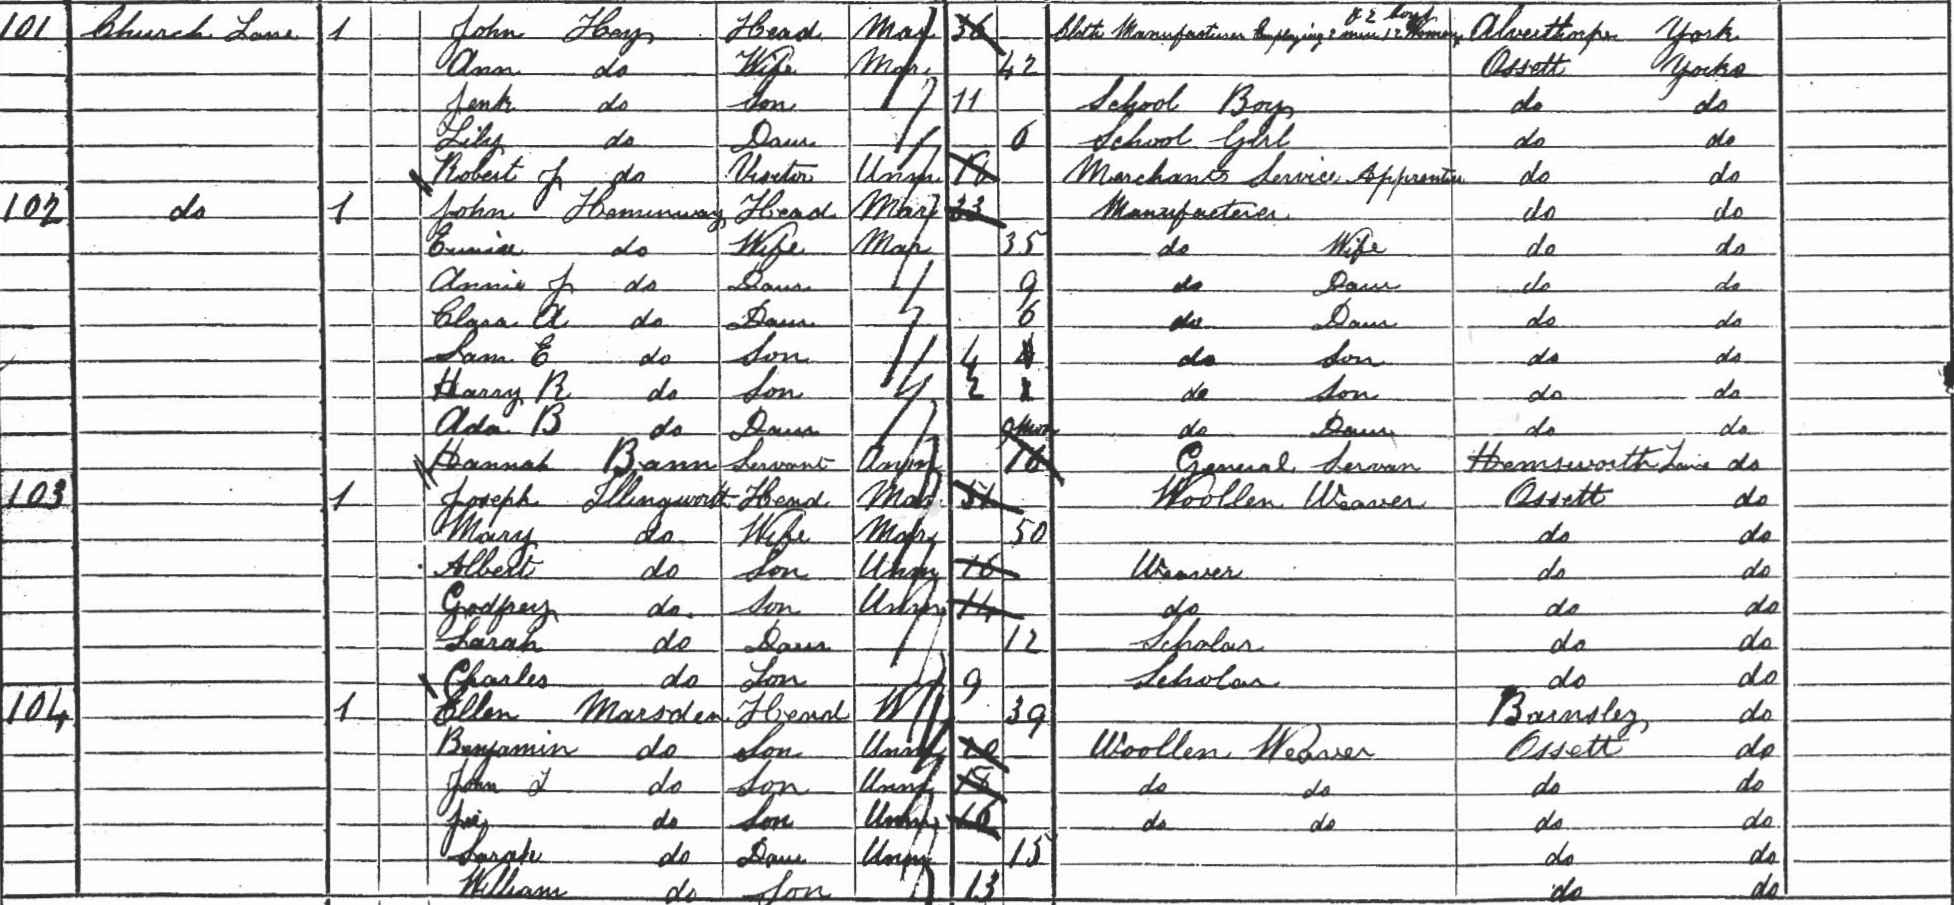 101 Church Lane 1 John Hey Head Mar 36 Cloth Manufacturer Employing 2 men 12 Women & 2 boys Alverthorpe York
Ann do Wife Mar 42 Ossett Yorks
Jenk do Son 11 School Boy do do
Lily do Daur 6 School Girl do do
Robert J do Visitor Unm Merchants Service Apprentice do do
102 do 1 John Heminway Head Mar 33 Manufacterer do do
Eunice do Wife Mar 35 do Wife do do
Annie J do Daur 9 do Daur do do
Clara A do Daur 6 do Daur do do
Sam E do Son 4 do Son do do
Harry R do Son 2 do Son do do
Ada B do Daur 9 mon do Daur do do
Hannah Bann Servant Unm 16 General Servan Hemsworth Lane do
103 1 Joseph Illingworth Head Mar 51 Woollen Weaver Ossett do
Mary do Wife Mar 50 do do
Albert do Son Unm 16 Weaver do do
Godfrey do Son Unm 14 do do do
Sarah do Daur 12 Scholar do do
Charles do Son 9 Scholar do do
104 1 Ellen Marsden Head W 39 Barnsley do
Benjamin do Son Unm Woollen Weaver Ossett do
John I do Son Unm 18 do do do do
Joe do Son Unm 16 do do do do
Sarah do Daur Unm 15 do do
William do Son 13 do do